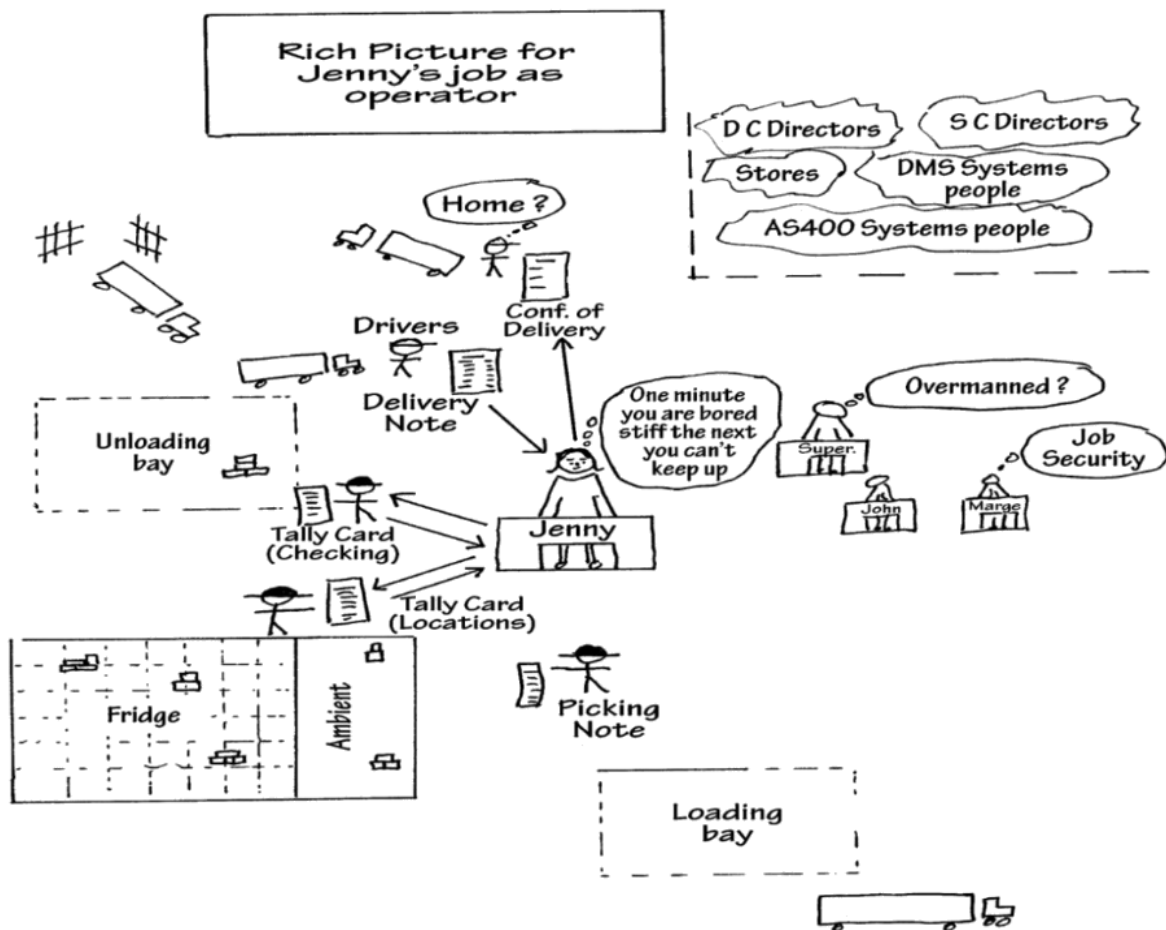 Rich Picture for
Jenny's job as
operator
D C Directors
S C Directors
Stores
DMS Systems
people
AS400 Systems people
Home ?
Conf. of
Delivery
Drivers
Delivery
Note
Unloading
bay
One minute
you are bored
stiff the next
you can't
keep up
Overmanned ?
Super.
Job
Security
John
Marge
Jenny
Tally Card
(Checking)
Tally Card
(Locations)
Fridge
Ambient
Picking
Note
Loading
bay